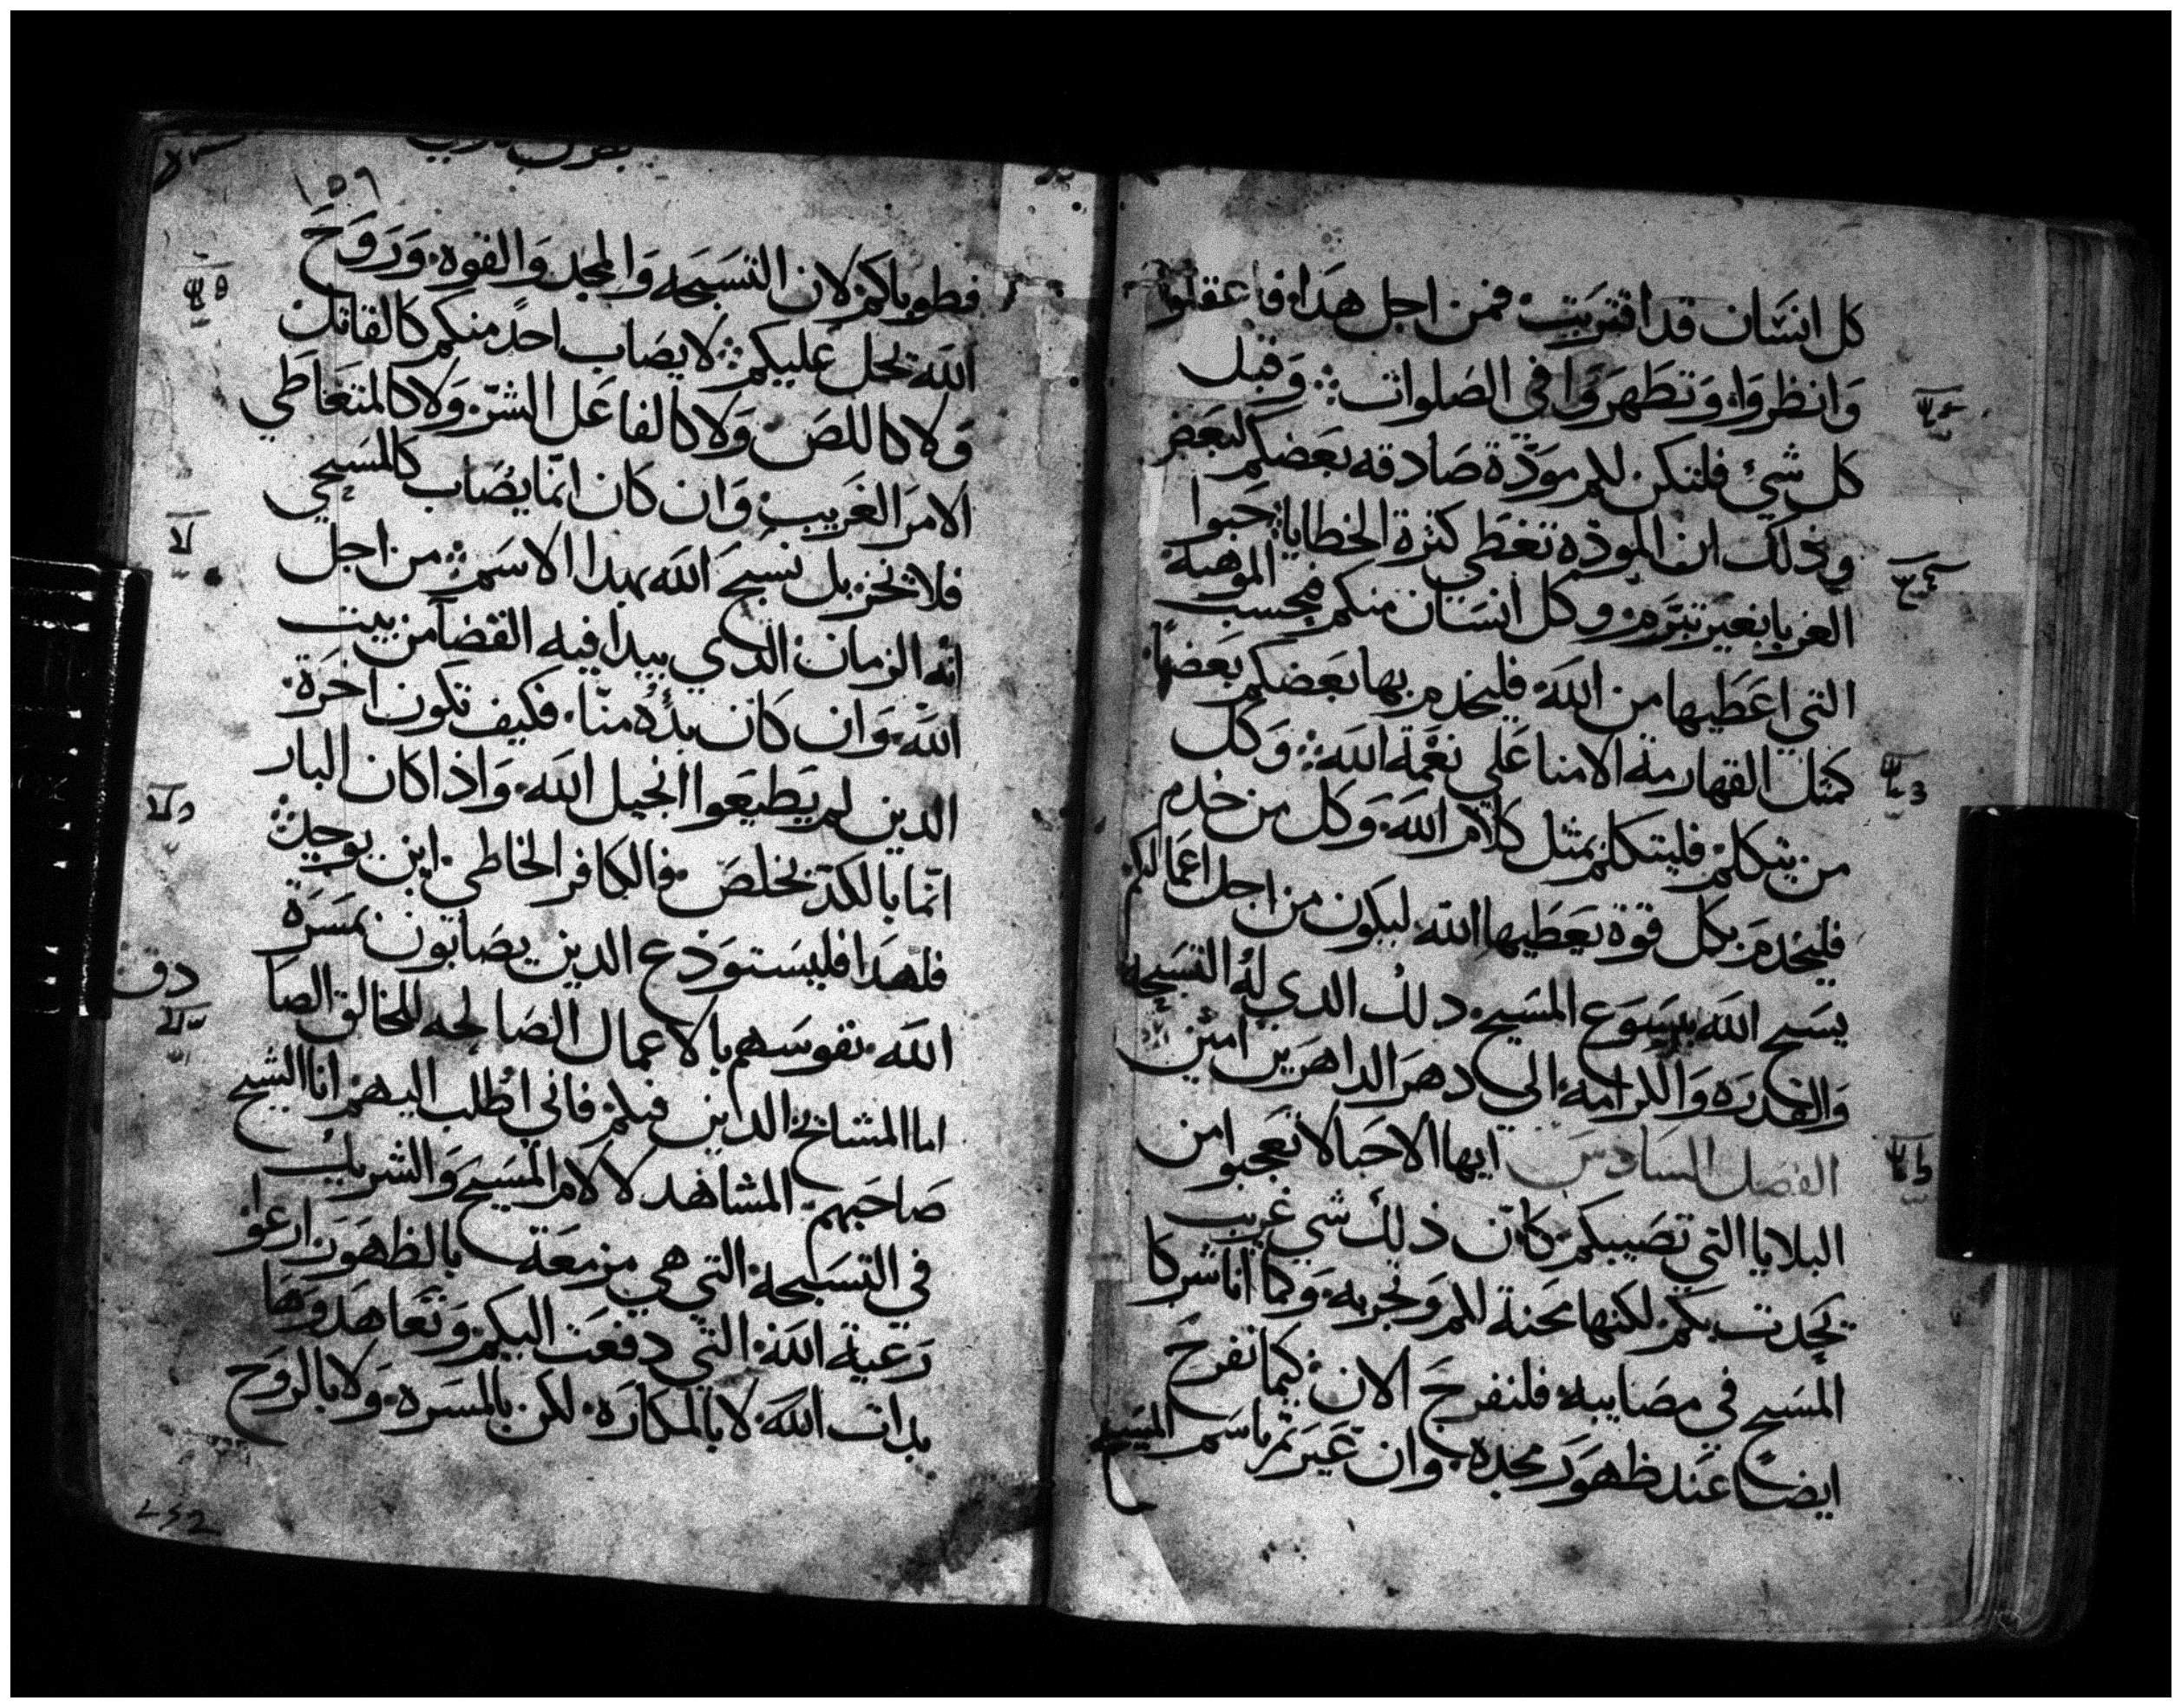 كل انسَان قد اقتربَت فمن اجل هدا فاعقلوا
وَانظروا وَتطَهرَوا في الصَلوات وَقبل
كل شيٍ فلتكن لكم موَدّة صَادقه بعَضكم لبعَض
وذلك ان الموَدّه تغطي كثرة الخطايا حَبوا
الغربا بغيَر تبَرّم وكل انسَان منكم فبحسب الموَهبَة
التي اعَطيها من اللَه فليخدم بها بعَضكم بعَضاً
كمثل القهارمة الامنا عَلي نعَمة اللَه وَكل
من يتكلم فليتكلم بمثل كلام اللَه وَكل من خدم
فليخدم بكل قوة يعَطيها اللَه ليكون من اجل اعَمالكم
يسَبح اللَه بيسَوَع المسَيح دلك الدي لهُ التسَبحه
وَالقدرَه وَالكرامه الي دهرَ الداهرَين امين
الفصَل السَادسَ ايها الاحَبا لا تعَجبوا من
البلايا التي تصَيبكم كانّ ذلك شي غريب
يحَدت بكم لكنها محَنة لكم وَتجربه وَكما انا شركا
المسَيح في مصَايبه فلنفرحَ الان كيما نفرحَ
ايضاً عَند ظهوَر مجَده وَان عَيرَتم باسَم المسَيح
١٥٩
فطوباكم لان التسَبحه وَالمجد وَالقوه وَرَوَحَ
اللَه تحل عَليكم لا يصَاب احدٌ منكم كالقاتل
وَلا كاللصَ وَلا كالفاعَل الشرّ وَلا كالمتعَاطَي
الامرَ الغرَيب وَان كان انمّا يصَاب كالمسَيحي
فلا يخز بل يسَبحَ اللَه بهدا الاسَم من اجل
انّه الزمان الدي يبدا فيه القضا من بيت
اللَه وَان كان بدُه منّا فكيف تكون اخرَة
الدين لم يطَيعَوا انجيل اللَه وَاذا كان البار
انمّا بالكدّ يخلصَ فالكافر الخاطي اين يوجد
فلهدا فليسَتوَدع الدين يصَابون بمسَرّة
اللَه نفوسَهم بالاعَمال الصَالحه للخالق الصَا
دق
اما المشايخ الدين فيكم فاني اطلب اليهم انا الشيخ
صَاحَبهم المشاهد لالام المسَيح وَالشريك
في التسَبحه التي هي مزمعَة بالظهوَر ارعَوا
رَعَية اللَه التي دفعَت اليكم وَتعَاهدوَهَا
بدات اللَه لا بالمكارَه لكن بالمسَرَه وَلا بالروَح